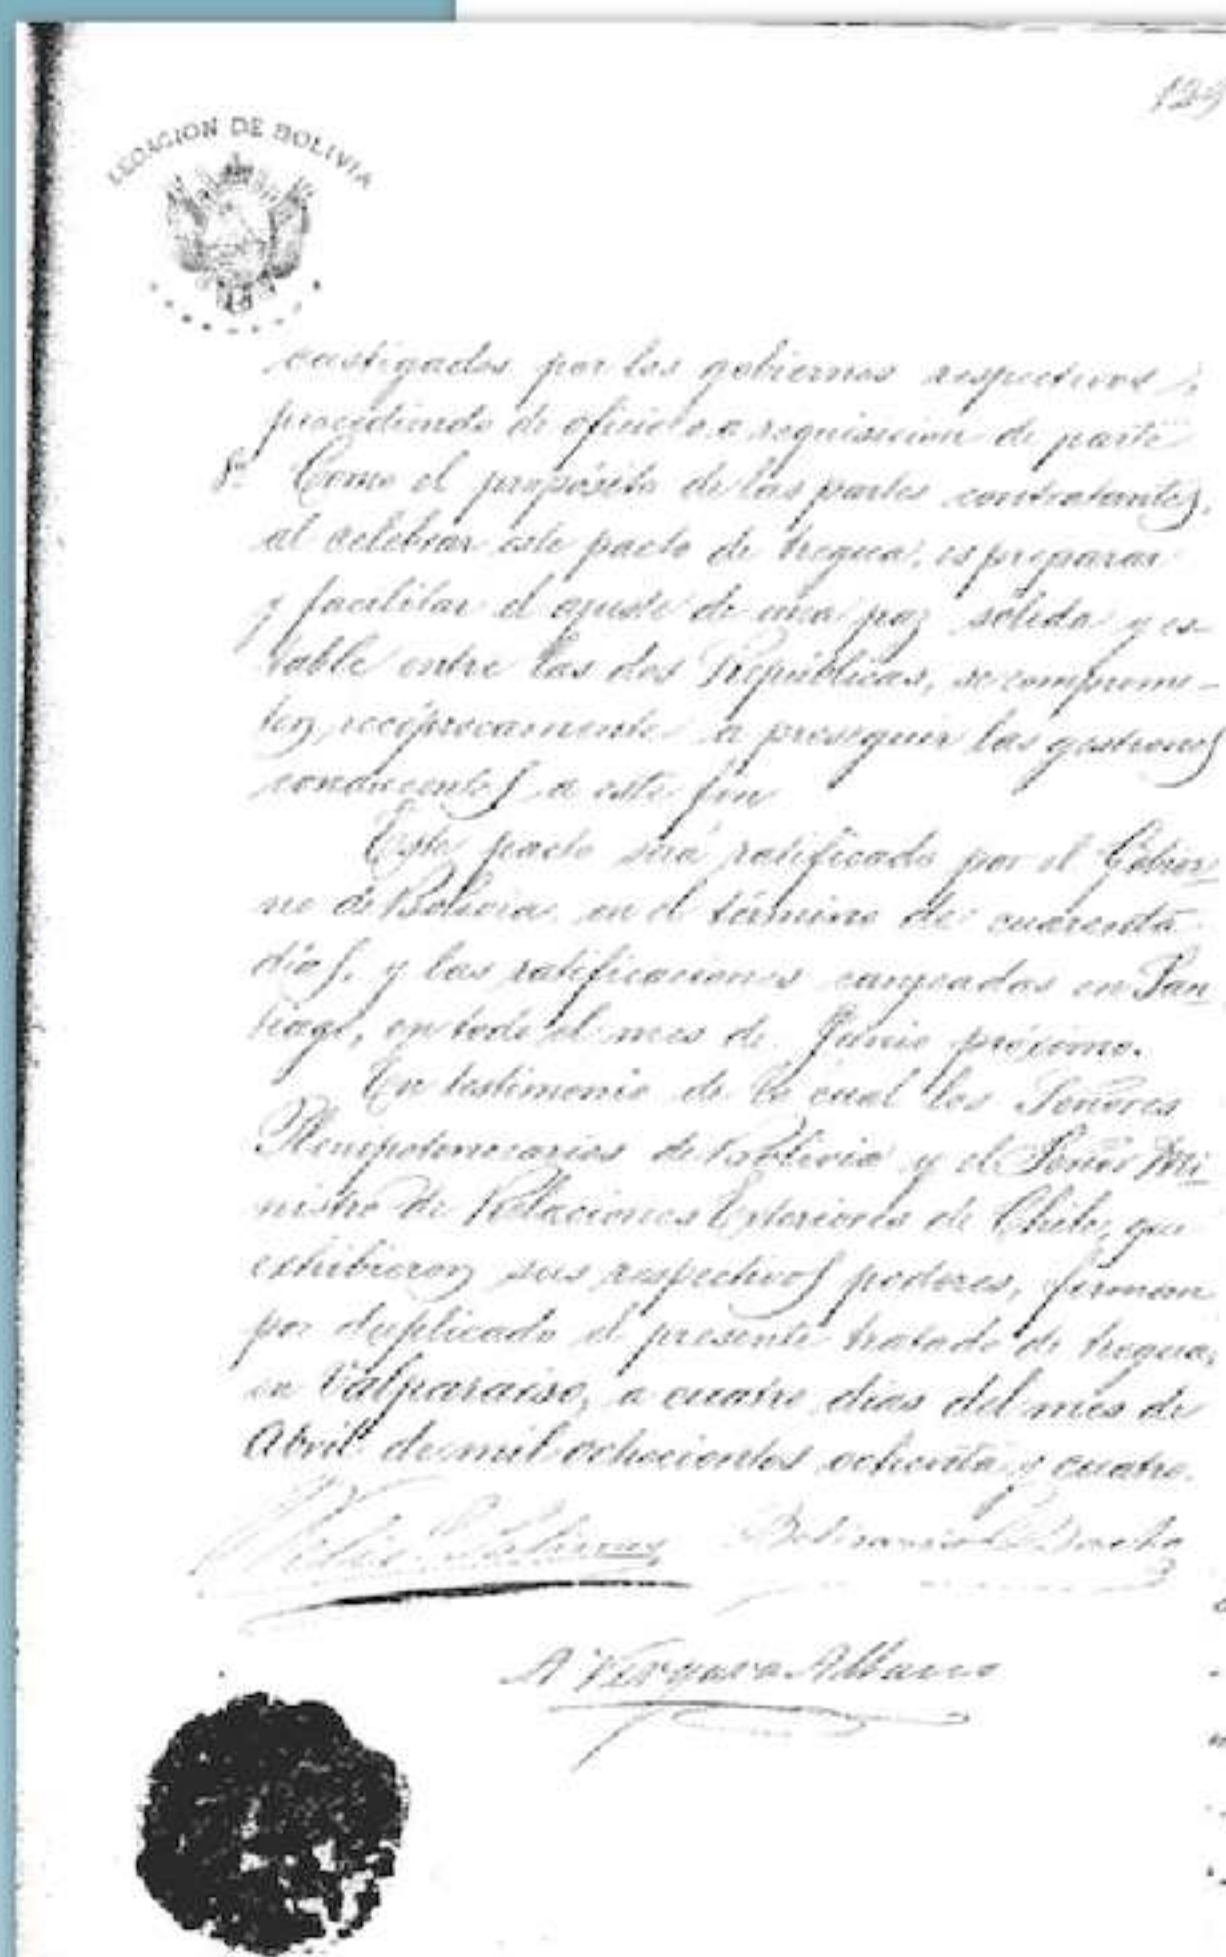 129
LEGACION DE BOLIVIA
castigados por los gobiernos respectivos,
procediendo de oficio o a requisicion de parte
8º Como el propósito de las partes contratantes,
al celebrar este pacto de tregua, es preparar
y facilitar el ajuste de una paz sólida y es-
table entre las dos Repúblicas, se comprome-
ten, recíprocamente a proseguir las gestiones
conducentes a este fin
Este pacto será ratificado por el Gobier-
no de Bolivia, en el término de cuarenta
días, y las ratificaciones canjeadas en San
tiago, en todo el mes de Junio próximo.
En testimonio de lo cual los Señores
Plenipotenciarios de Bolivia y el Señor Mi-
nistro de Relaciones Exteriores de Chile, que
exhibieron sus respectivos poderes, firman
por duplicado el presente tratado de tregua,
en Valparaiso, a cuatro dias del mes de
Abril de mil ochocientos ochenta y cuatro.
Salinas Belisario Boeto
A Vergara Albano